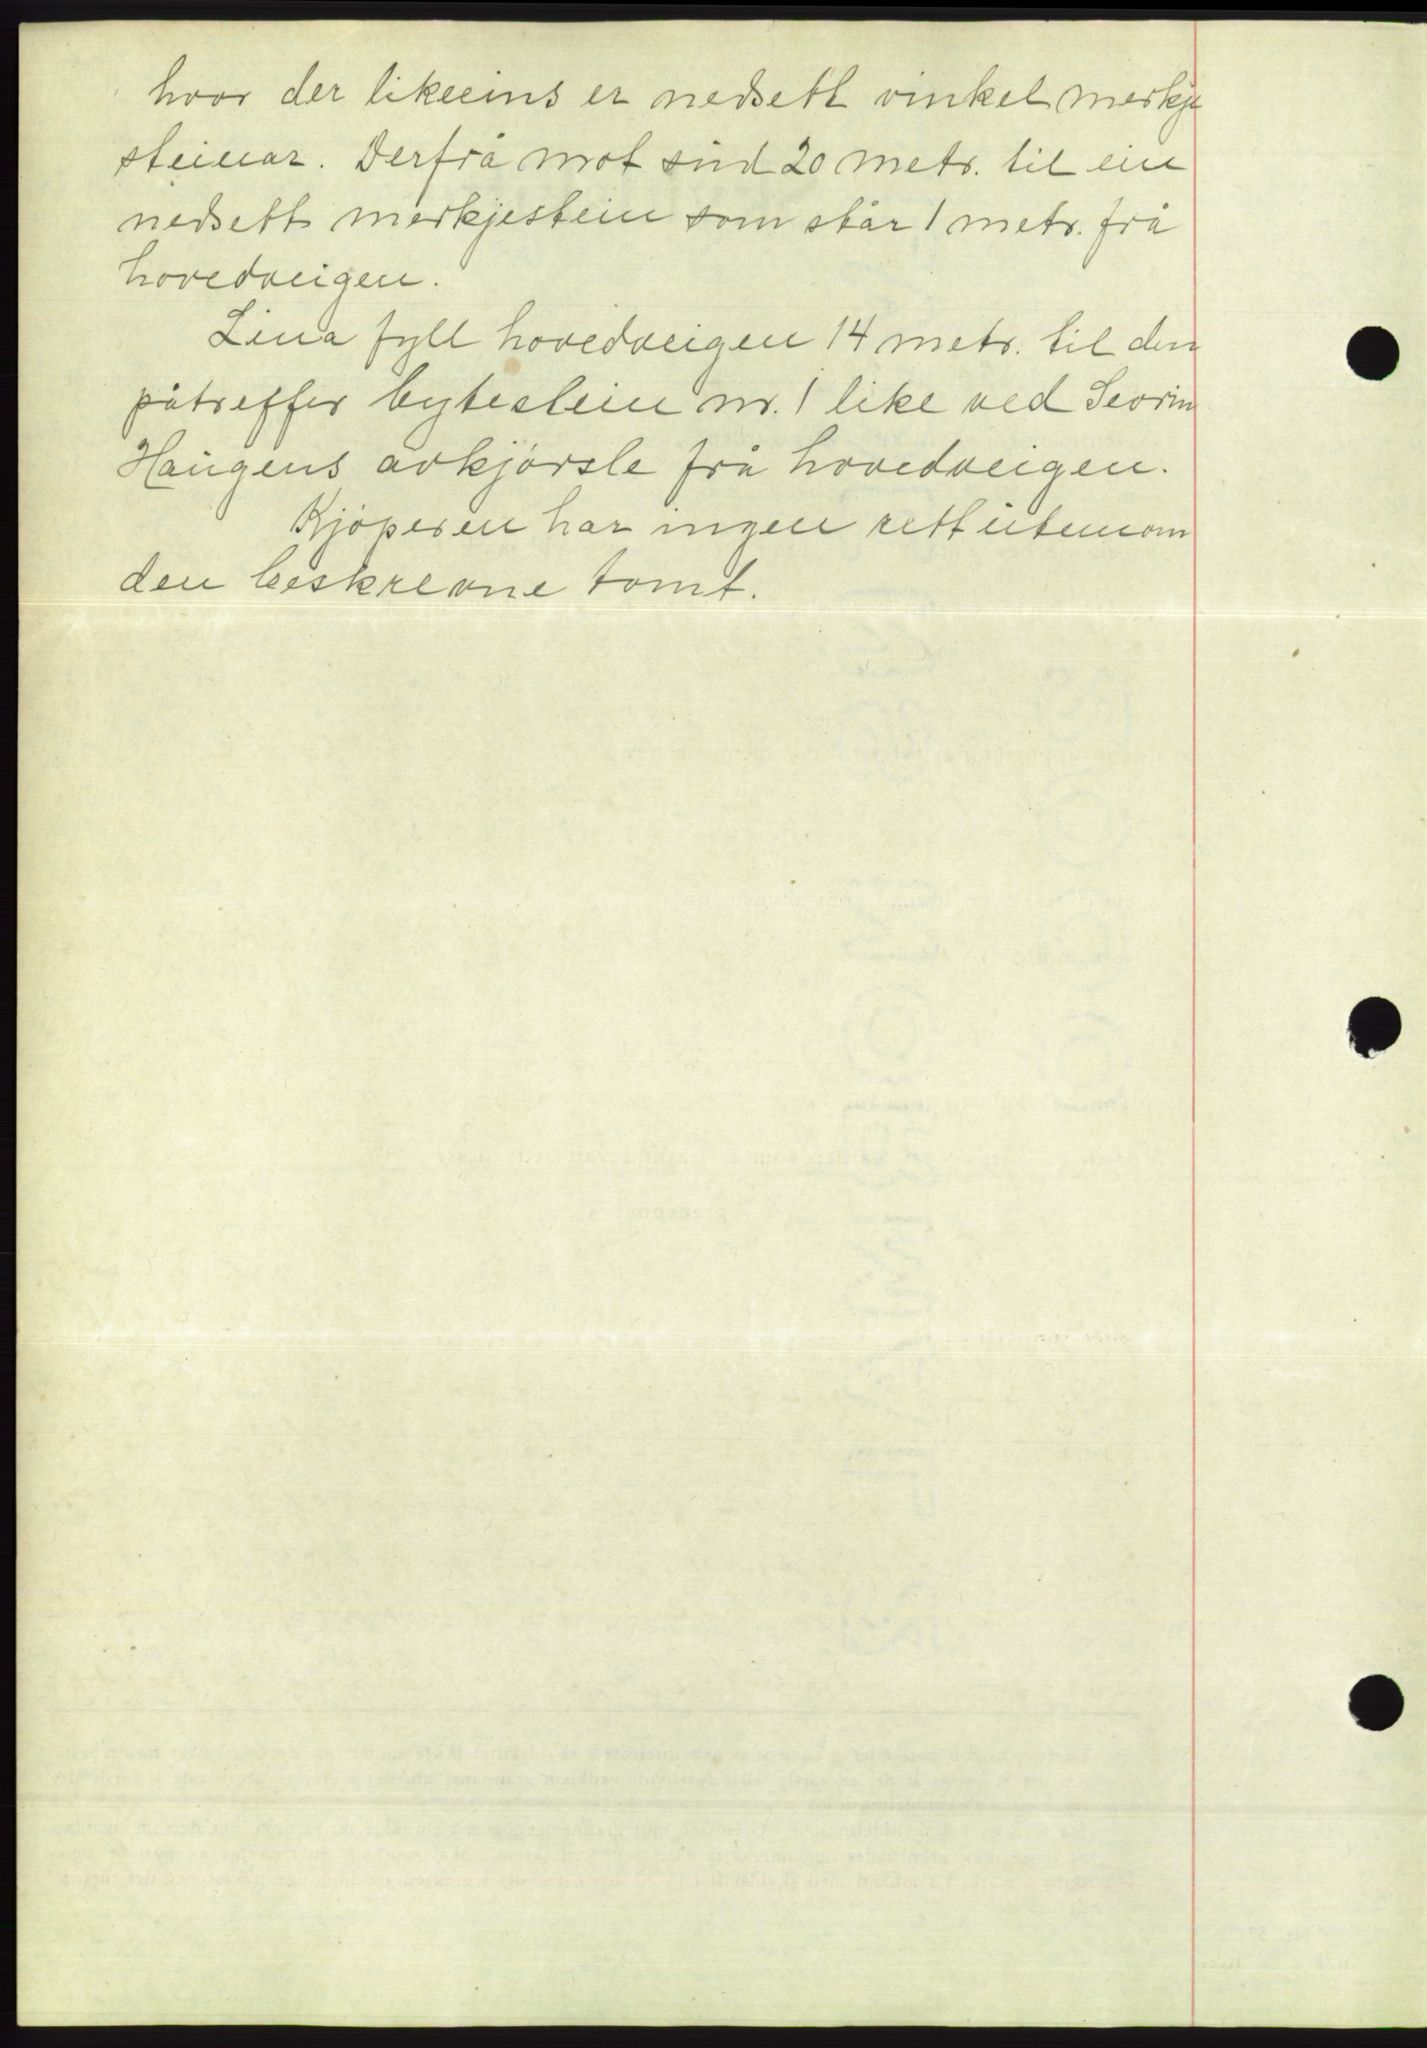 hvor der likeeins er nedsett vinkel merkje
steinar. Derfrå mot süd 20 metr. til ein
nedsett merkjestein som står 1 metr. frå
hovedveigen.
Lina fyll hovedveigen 14 metr. til den
påtreffer bytestein nr. 1 like ved Sevrin
Haugens avkjørsle frå hovedveigen.
Kjøperen har ingen rett utenom
den beskrevne tomt.